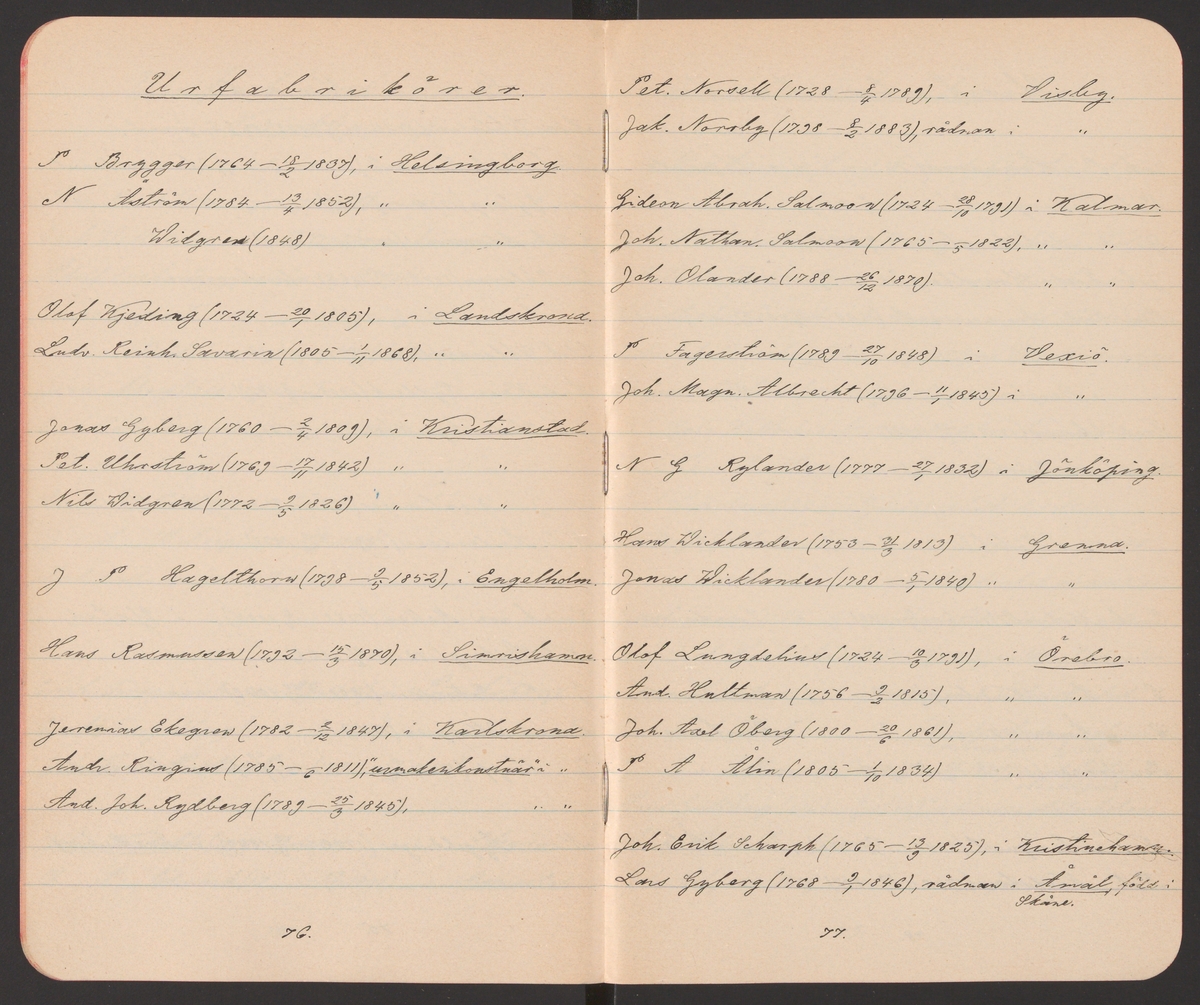 Urfabrikörer.
P Brygger (1764 — 18/2 1837), i Helsingborg.
N Åström (1784 — 13/4 1852), „ „
Widgren (1848) „ „
Olof Kjeding (1724 — 20/1 1805), i Landskrona.
Ludv. Reinh. Savarin (1805 — 1/11 1868), „ „
Jonas Gyberg (1760 — 2/4 1809), i Kristianstad.
Pet. Uhrström (1769 — 17/11 1842) „ „
Nils Widgren (1772 — 9/5 1826) „ „
J P Hagelthorn (1798 — 9/5 1852), i Engelholm.
Hans Rasmussen (1792 — 15/3 1870), i Simrishamn.
Jeremias Ekegren (1782 — 2/12 1847), i Karlskrona.
Andr. Ringius (1785 — /6 1811), "urmakerikonstnär" i „
And. Joh. Rydberg (1789 — 25/3 1845), „ „
76.
Pet. Norsell (1728 — 8/4 1789), i Visby.
Jak. Norrby (1798 — 8/2 1883), rådman i „
Gideon Abrah. Salmoon (1724 — 28/10 1791) i Kalmar.
Joh. Nathan. Salmoon (1765 — /5 1822), „ „
Joh. Olander (1788 — 26/12 1870). „ „
P Fagerström (1789 — 27/10 1848) i Vexiö.
Joh. Magn. Albrecht (1796 — 11/1 1845) i „
N G Rylander (1777 — 27/1 1832) i Jönköping.
Hans Wicklander (1753 — 31/3 1813) i Grenna.
Jonas Wicklander (1780 — 5/1 1840) „ „
Olof Ljungdelius (1724 — 10/3 1791), i Örebro.
And. Hultman (1756 — 9/2 1815), „ „
Joh. Axel Öberg (1800 — 20/6 1861), „ „
P A Ålin (1805 — 1/10 1834) „ „
Joh. Erik Scharph (1765 — 13/9 1825), i Kristinehamn.
Lars Gyberg (1768 — 9/1 1846), rådman i Åmål, född i
Skåne.
77.